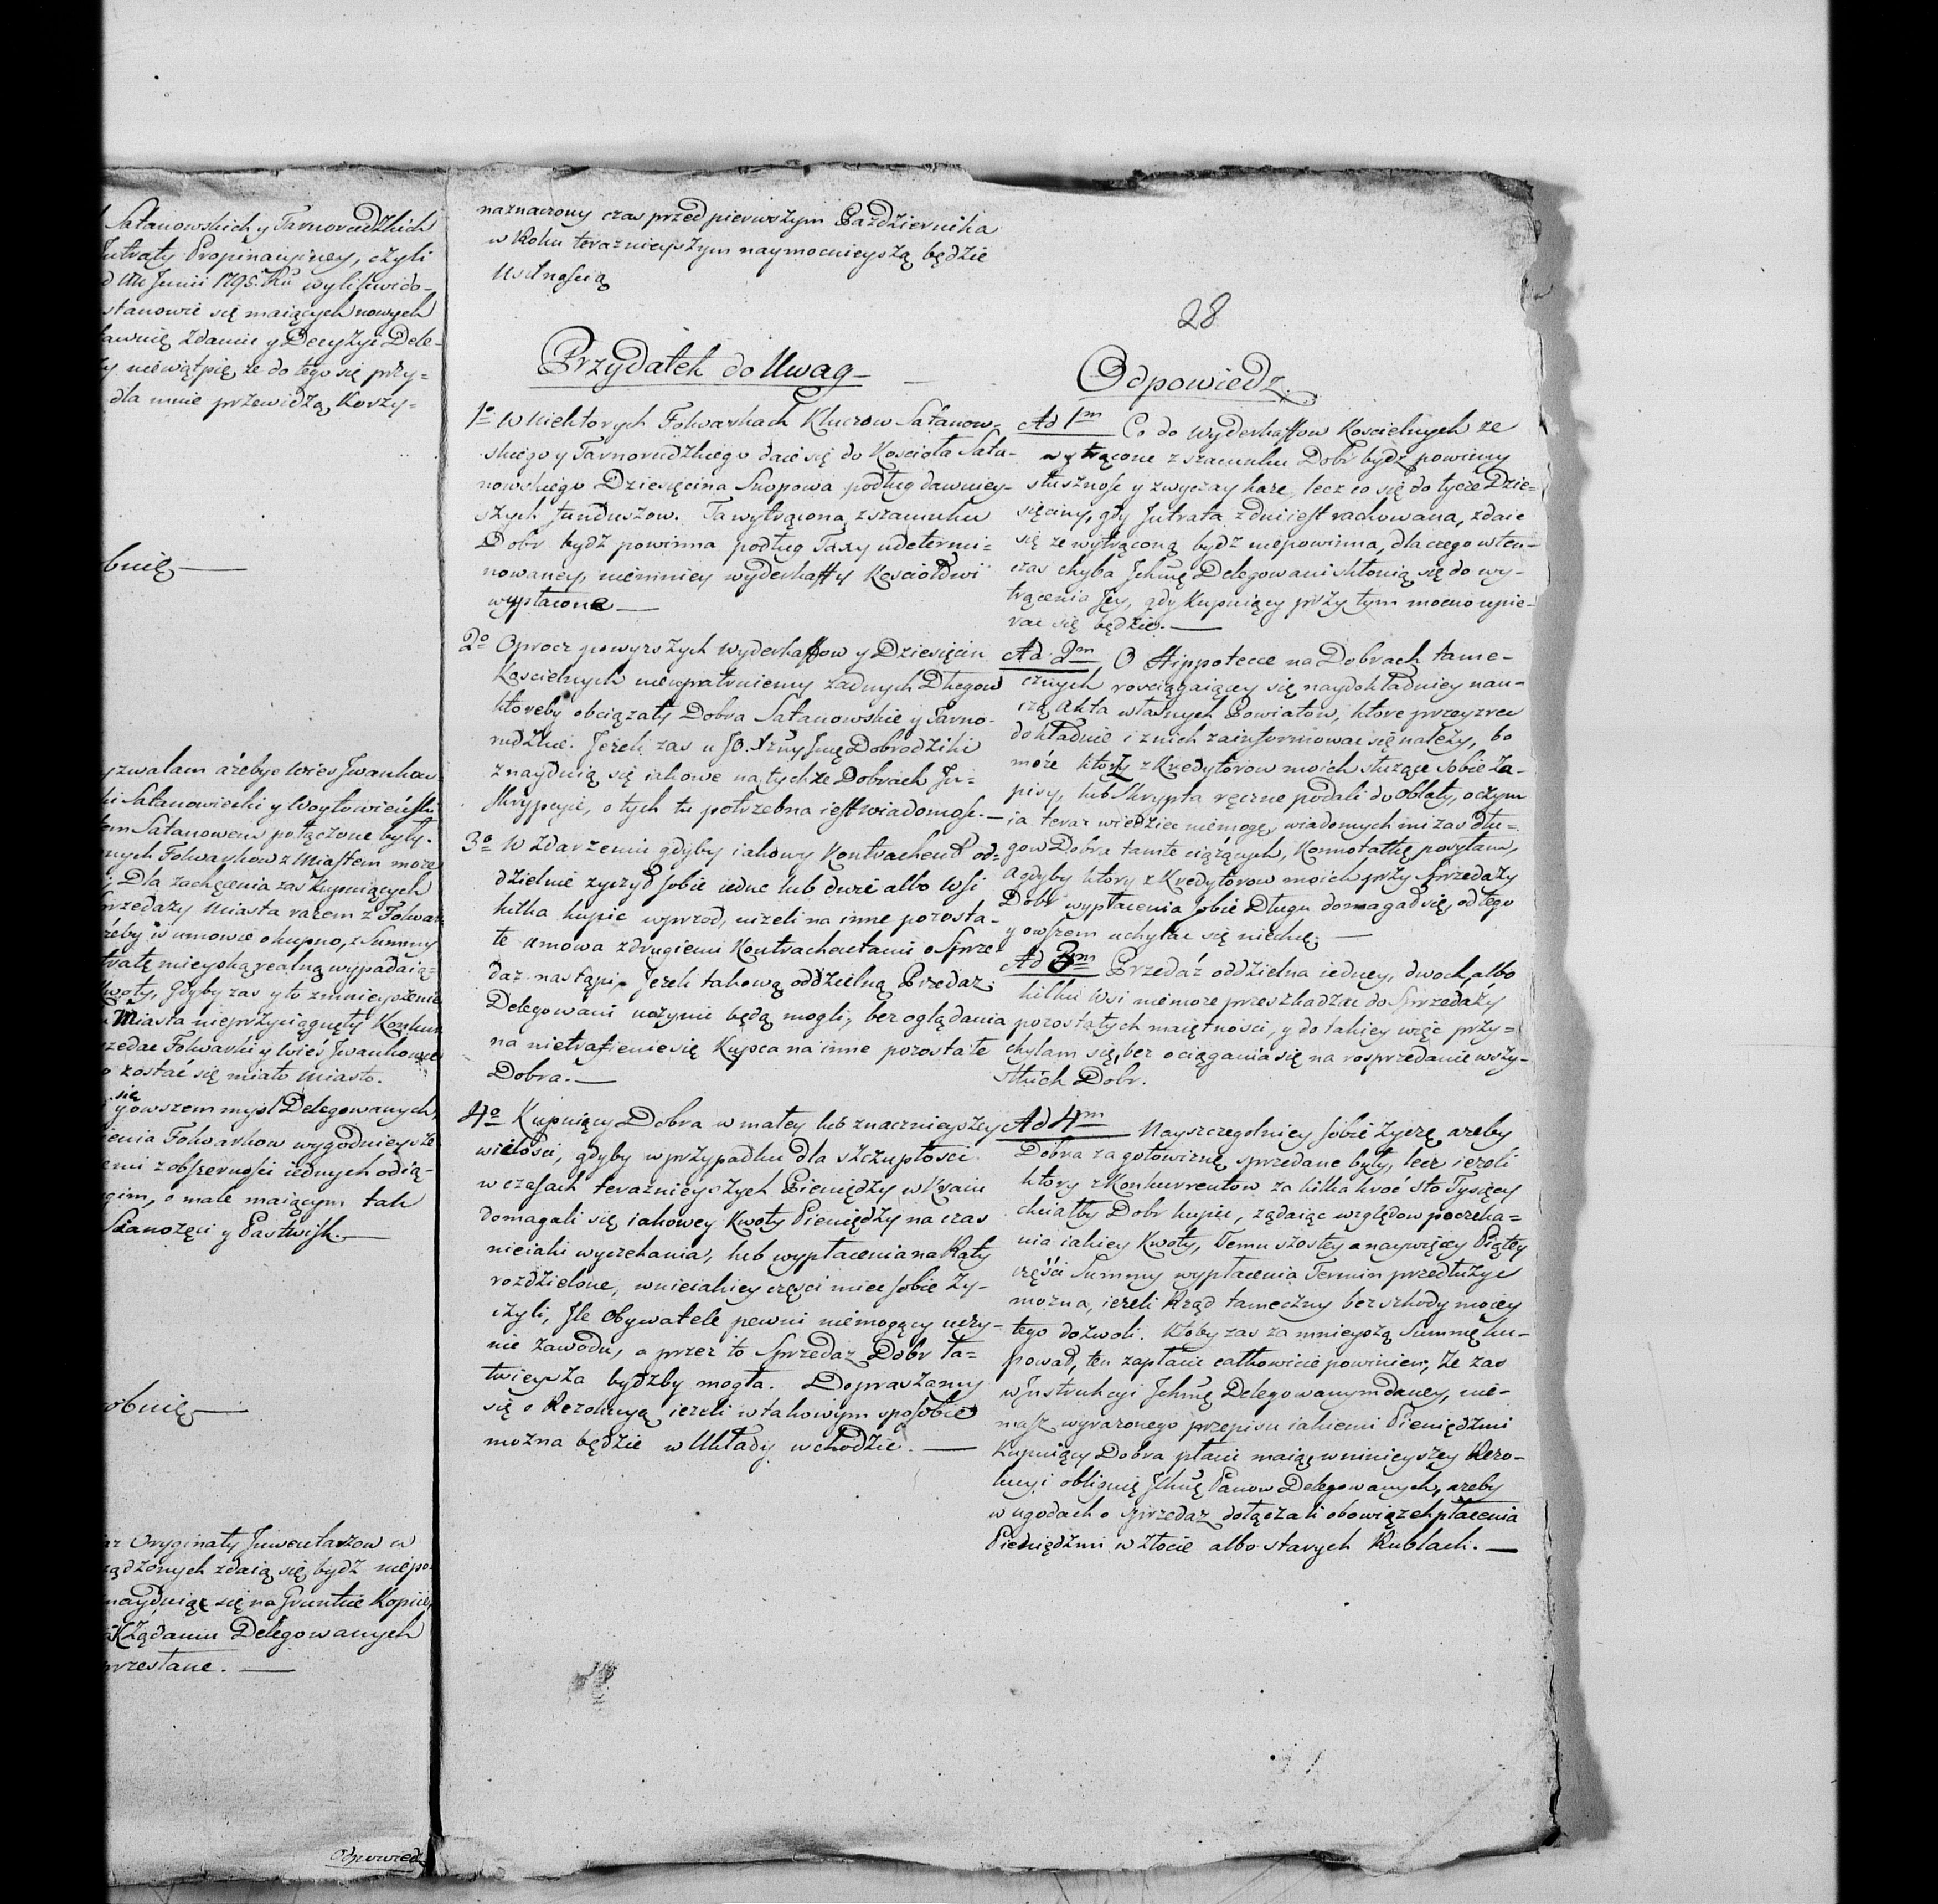 Satanowskich y Tarnorudzkich
Intraty Propinacyiney, czyli
Junii 1795. Ru wylikwido-
stanowić się maiących nowych
zdanie y Decyzyi Dele-
niewątpię, że do tego się przy=
dla mnie przewidzą Korzy-
bnię —
zwalam ażeby Wieś Iwankow-
Satanowiecki y Woytowiecki
Satanowem połączone były.
nych Folwarkow z Miastem może
Dla zachęcenia zaś Kupuiących
przedaży Miasta razem z Folwar
żeby w umowie o kupno, z Summy
tratę mieyską realną wypadaią=
Kwoty, Gdyby zaś y to zmnieyszenie
Miasta nieprzyciągnęły Konkur
rzedać Folwarki y Wieś Iwankowce
zostać się miało Miasto.
się
y owszem myśl Delegowanych
ienia Folwarkow wygodnieysze
z obszerności iednych odią-
gim, o male maiącym tak
Sianożęci y Pastwisk. —
obnię —
Oryginały Inwentarzow w
ządzonych zdaią się bydź niepo
nayduiąc się na Gruntie Kopiie,
Żądaniu Delegowanych
przesłane. —
Odpowiedź
naznaczony czas przed pierwszym Października
w Roku teraznieyszym naymocnieyszą będzie
Usilnością
Przydatek do Uwag —
1o W niektorych Folwarkach Kluczow Satanow-
skiego y Tarnorudzkiego daie się do Kościoła Sata-
nowskiego Dziesięcina Snopowa podług dawniey-
szych funduszow. Ta wytrącona z szacunku
Dobr bydź powinna podług Taxy udetermi=
nowaney, niemniey wyderkaffy Kościołowi
wypłacone —
2o Oprocz powyższych Wyderkaffow y Dziesięcin
Kościelnych nieupatruiemy żadnych Długow
ktoreby obciążały Dobra Satanowskie y Tarno-
rudzkie. Jeżeli zaś u JO. Xżny Jmę Dobrodziki
znayduią się iakowe na tychże Dobrach In=
skrypcyie, o tych tu potrzebna iest wiadomość. —
3o W zdarzeniu gdyby iakowy Kontrachent od=
dzielnie życzył sobie iednę lub dwie albo Wsi
kilka kupić wprzod, niżeli na inne pozosta-
łe umowa z drugiemi Kontrachentami o Sprze
daż nastąpi. Jeżeli takową oddzielną Przedaż
Delegowani uczynić będą mogli, bez oglądania
na nietrafienie się Kupca na inne pozostałe
Dobra. —
4o Kupuiący Dobra w małey lub znacznieyszey
wielości, gdyby w przypadku dla szczupłości
w czasach teraznieyszych Pieniędzy w Kraiu
domagali się iakowey Kwoty Pieniędzy na czas
nieiaki wyczekania, lub wypłacenia na Raty
rozdzielone, w nieiakiey części mieć sobie ży-
czyli, Ile Obywatele pewni niemogący uczy-
nić zawodu, a przez to Sprzedaż Dobr ła=
twieysza bydźby mogła. Dopraszamy
się o Rezolucyą ieżeli w takowym sposobie
można będzie w Układy wchodzić. —
28
Odpowiedź.
Ad 1m Co do Wyderkaffow Kościelnych że
wytrącone z szacunku Dobr bydź powinny
słuszność y zwyczay każe, lecz co się do tycze Dzie=
sięciny, gdy Intrata z dni iest rachowana, zdaie
się że wytrąconą bydź niepowinna, dla czego w ten-
czas chyba Jchmę Delegowani skłonią się do wy-
trącenia Jey, gdy Kupuiący przy tym mocno upie-
rać się będzie. —
Ad 2m O Hippotece na Dobrach tame-
cznych rościągaiącey się naydokładniey nau-
czą Akta właśnych Powiatow, ktore przeyrzeć
dokładnie i z nich zainformować się należy, bo
może ktorzy z Kredytorow moich służące sobie Za-
pisy, lub Skrypta ręczne podali do Oblaty, o czym
ia teraz wiedzieć niemogę, wiadomych mi zaś dłu=
gow Dobra tamte ciążących, Konnotatkę posyłam,
a gdyby ktory z Kredytorow moich przy Sprzedaży
Dobr wypłacenia sobie Długu domagał się, od tego
y owszem uchylać się niechcę. —
Ad 3m Przedaż oddzielna iedney, dwoch, albo
kilku Wsi niemoże przeszkadzać do Sprzedaży
pozostałych maiętności, y do takiey więc przy=
chylam się, bez ociągania się na rosprzedanie wszy-
stkich Dobr.
Ad 4m Nayszczegolniey sobie życzę ażeby
Dobra za gotowiznę sprzedane były, lecz ieżeli
ktory z Konkurrentow za kilka kroć sto Tysięcy
chciałby Dobr kupić, żądaiąc względow poczeka=
nia iakiey Kwoty, Temu szostey a naywięcey Piątey
części Summy wypłacenia Termin przedłużyć
można, ieżeli Rząd tameczny bez szkody moiey
tego dozwoli. Ktoby zaś za mnieyszą Summę ku-
pował, ten zapłacić całkowicie powinien, że zaś
w Instrukcyi Jchmę Delegowanym daney, nie-
masz wyrażonego przepisu iakiemi Pieniędzmi
Kupuiący Dobra płacić maią, w ninieyszey Rezo-
lucyi obliguię Jchmę Panow Delegowanych, ażeby
w ugodach o sprzedaż dołączali obowiązek płacenia
Pieniędzmi w złocie albo starych Rublach. —